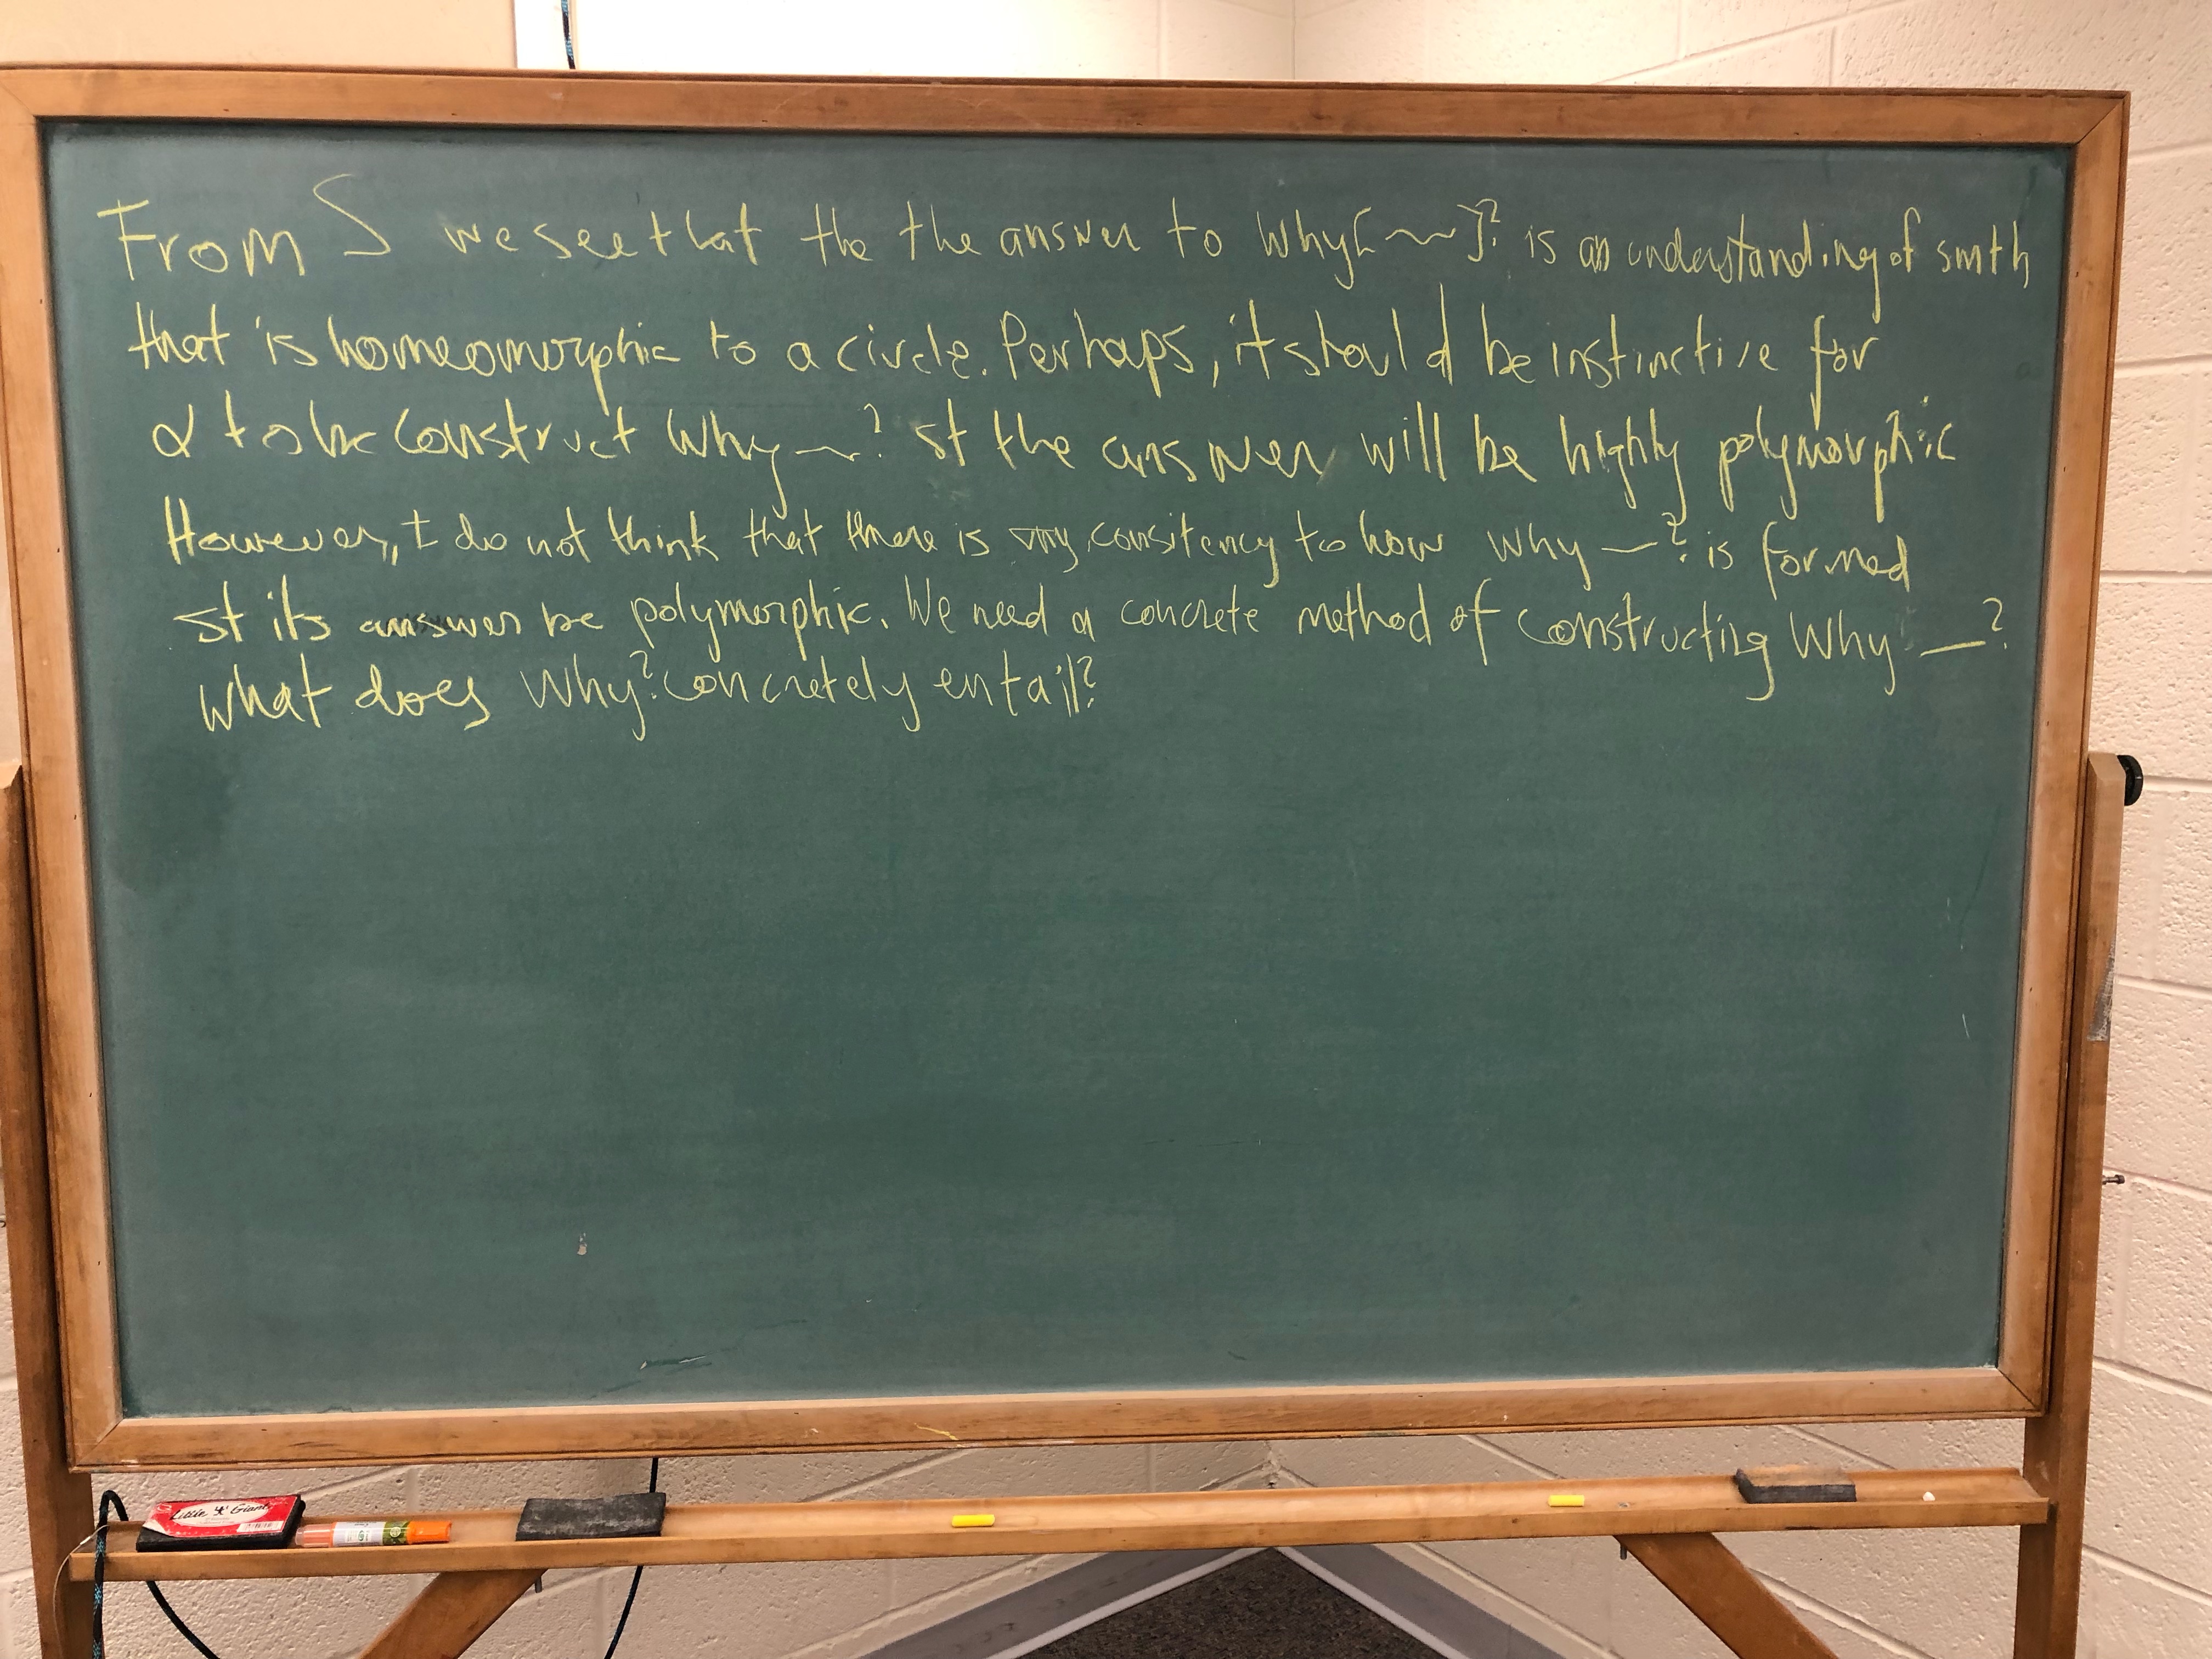 From S we see that the the answer to Why[~~]? is an understanding of smth
that is homeomorphic to a circle. Perhaps, it should be instinctive for
α to be construct Why ~? st the answer will be highly polymorphic
However, I do not think that there is any consitency to how Why —? is formed
st its answer be polymorphic. We need a concrete method of constructing Why —?
What does Why? concretely entail?
Little Giant